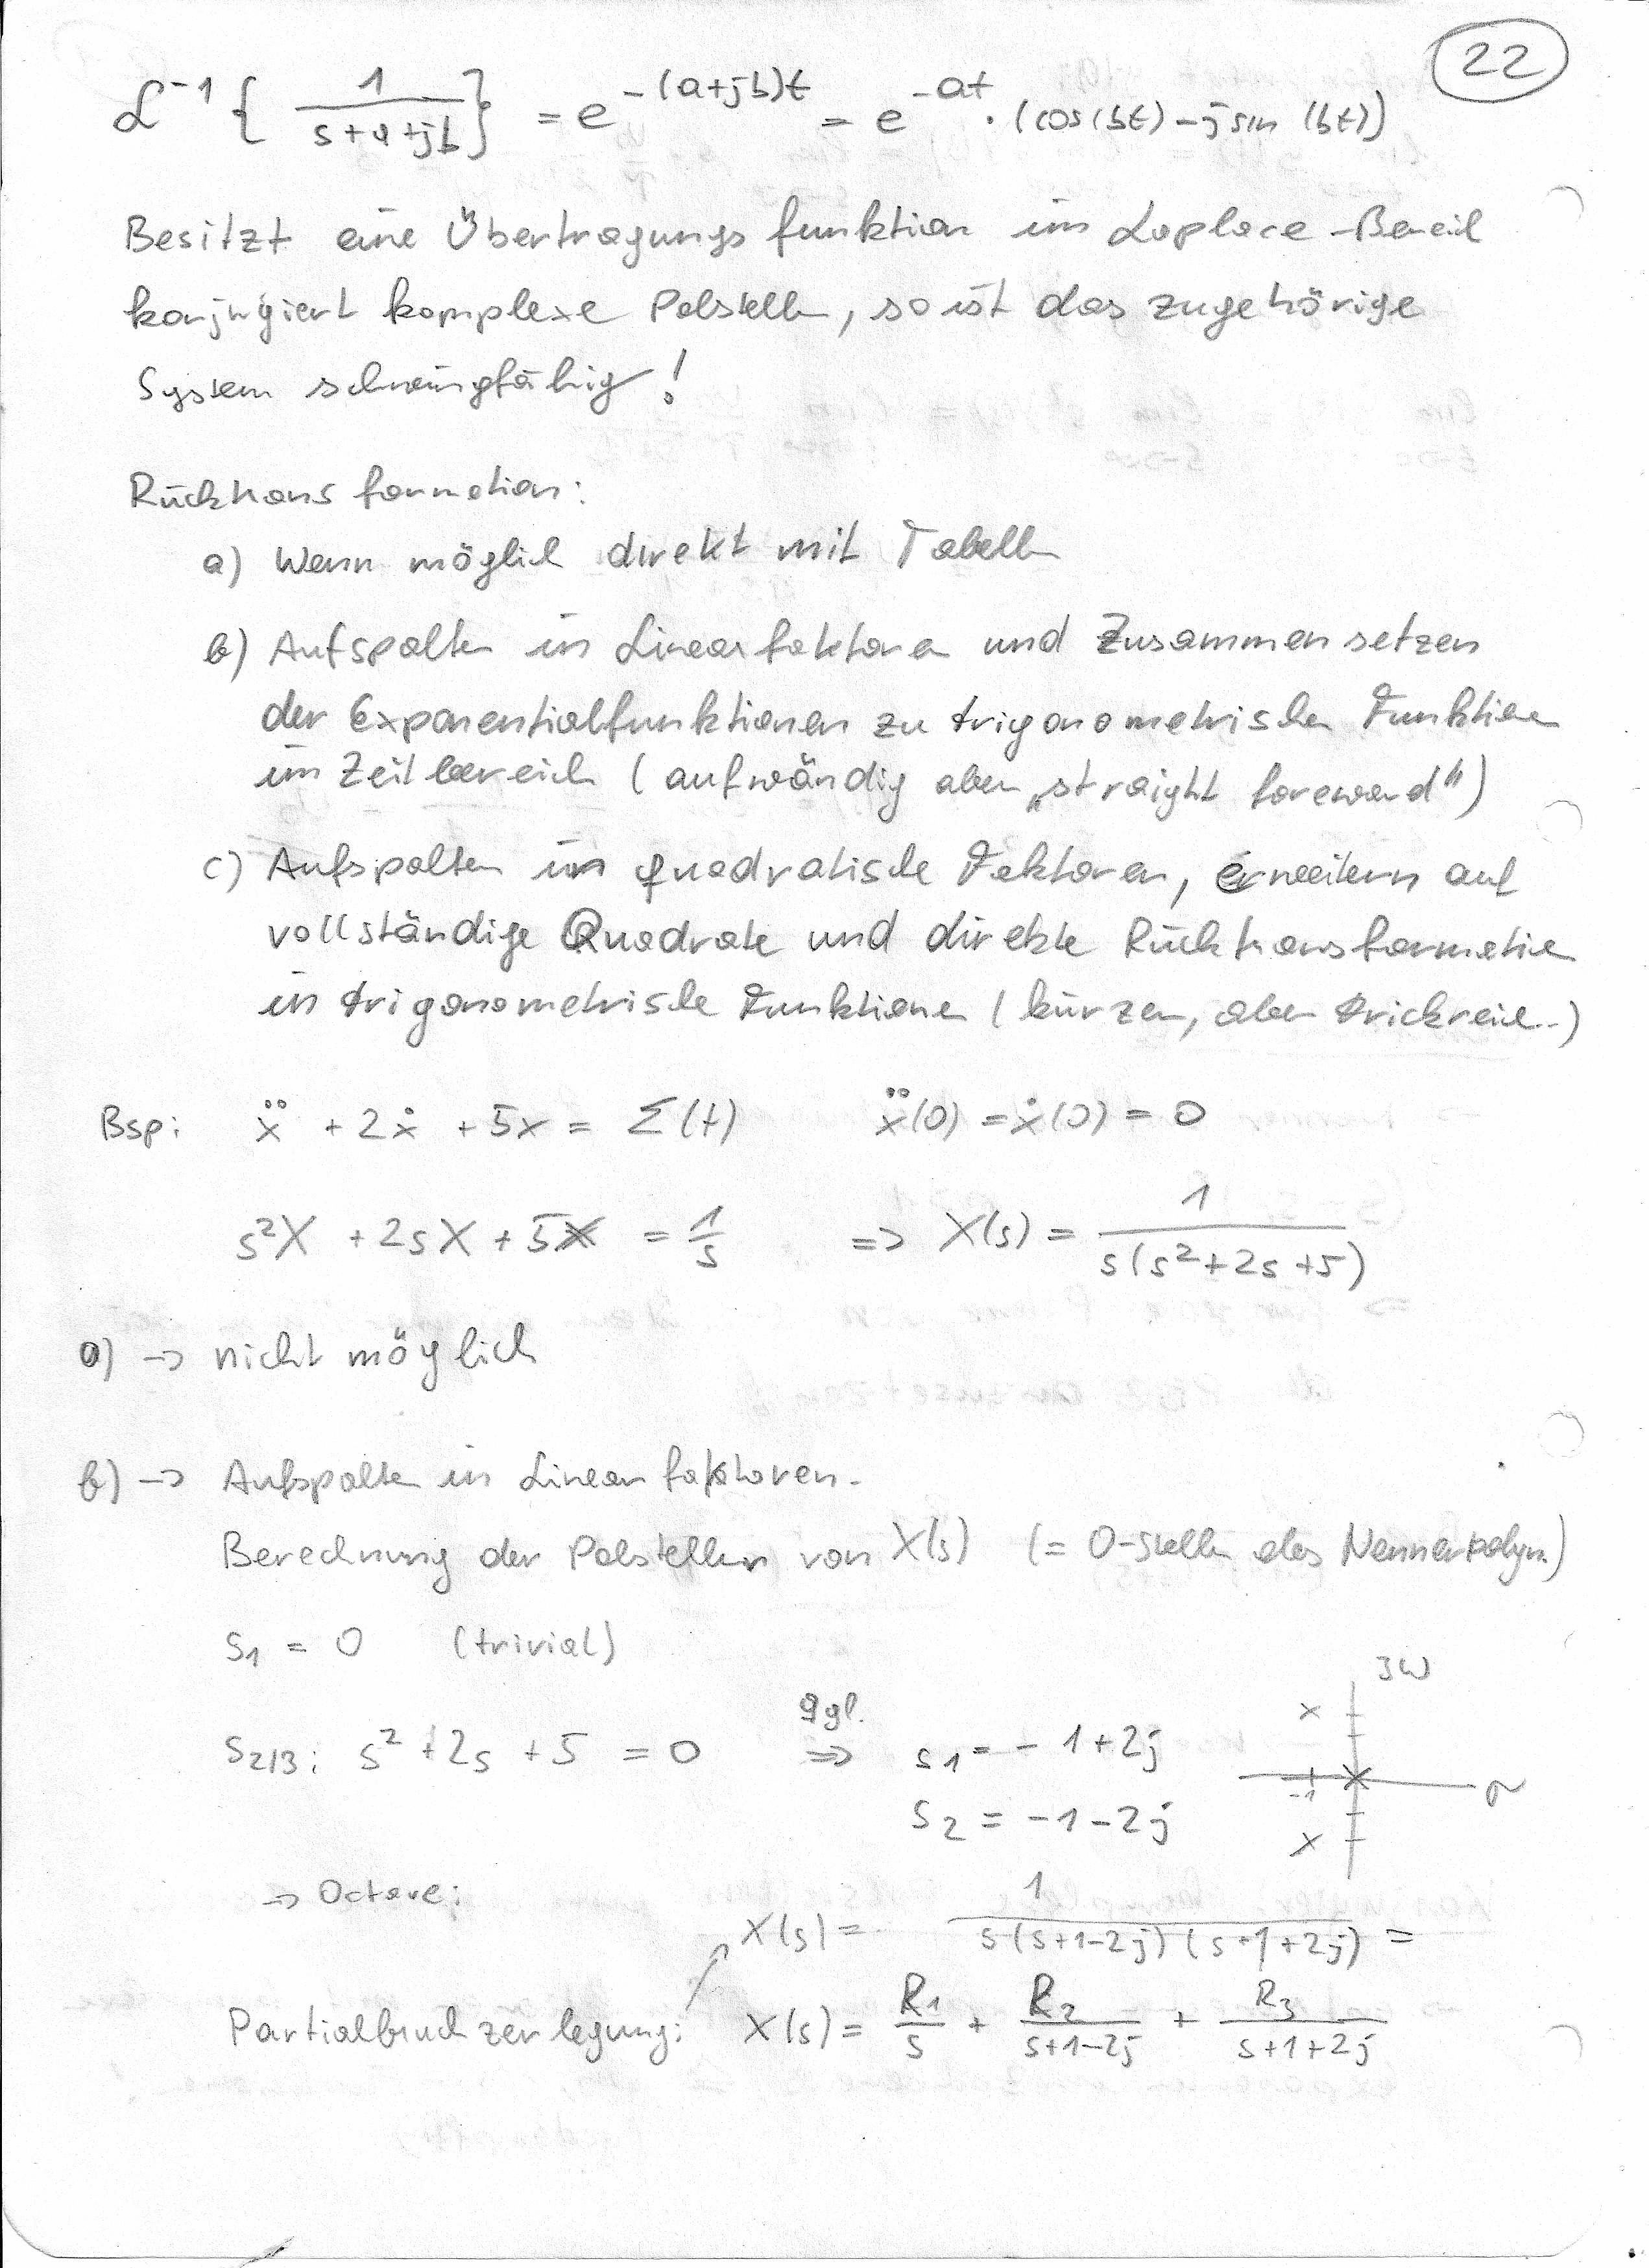 22
ℒ⁻¹ { 1/(s+a+jb) } = e^-(a+jb)t = e^-at · (cos(bt) - j sin (bt))
Besitzt eine Übertragungsfunktion im Laplace-Bereich
konjugiert komplexe Polstellen, so ist das zugehörige
System schwingfähig!
Rücktransformation:
a) Wenn möglich direkt mit Tabelle
b) Aufspalten in Linearfaktoren und Zusammensetzen
der Exponentialfunktionen zu trigonometrischen Funktionen
im Zeitbereich (aufwändig aber „straight foreward")
c) Aufspalten in quadratische Faktoren, erweitern auf
vollständige Quadrate und direkte Rücktransformation
in trigonometrische Funktionen (kürzer, aber trickreich..)
Bsp: ẍ + 2ẋ + 5x = Σ(t) ẍ(0) = ẋ(0) = 0
s²X + 2sX + 5X = 1/s => X(s) = 1/(s(s²+2s+5))
a) → nicht möglich
b) → Aufspalten in Linearfaktoren.
Berechnung der Polstellen von X(s) (= 0-Stellen des Nennerpolyn.)
s₁ = 0 (trivial)
jω
s₂/₃: s² + 2s + 5 = 0 qgl. => s₁ = - 1+2j
-1 σ
s₂ = -1-2j
→ Octave:
X(s) = 1/(s(s+1-2j)(s+1+2j)) =
Partialbruchzerlegung: X(s) = R₁/s + R₂/(s+1-2j) + R₃/(s+1+2j)